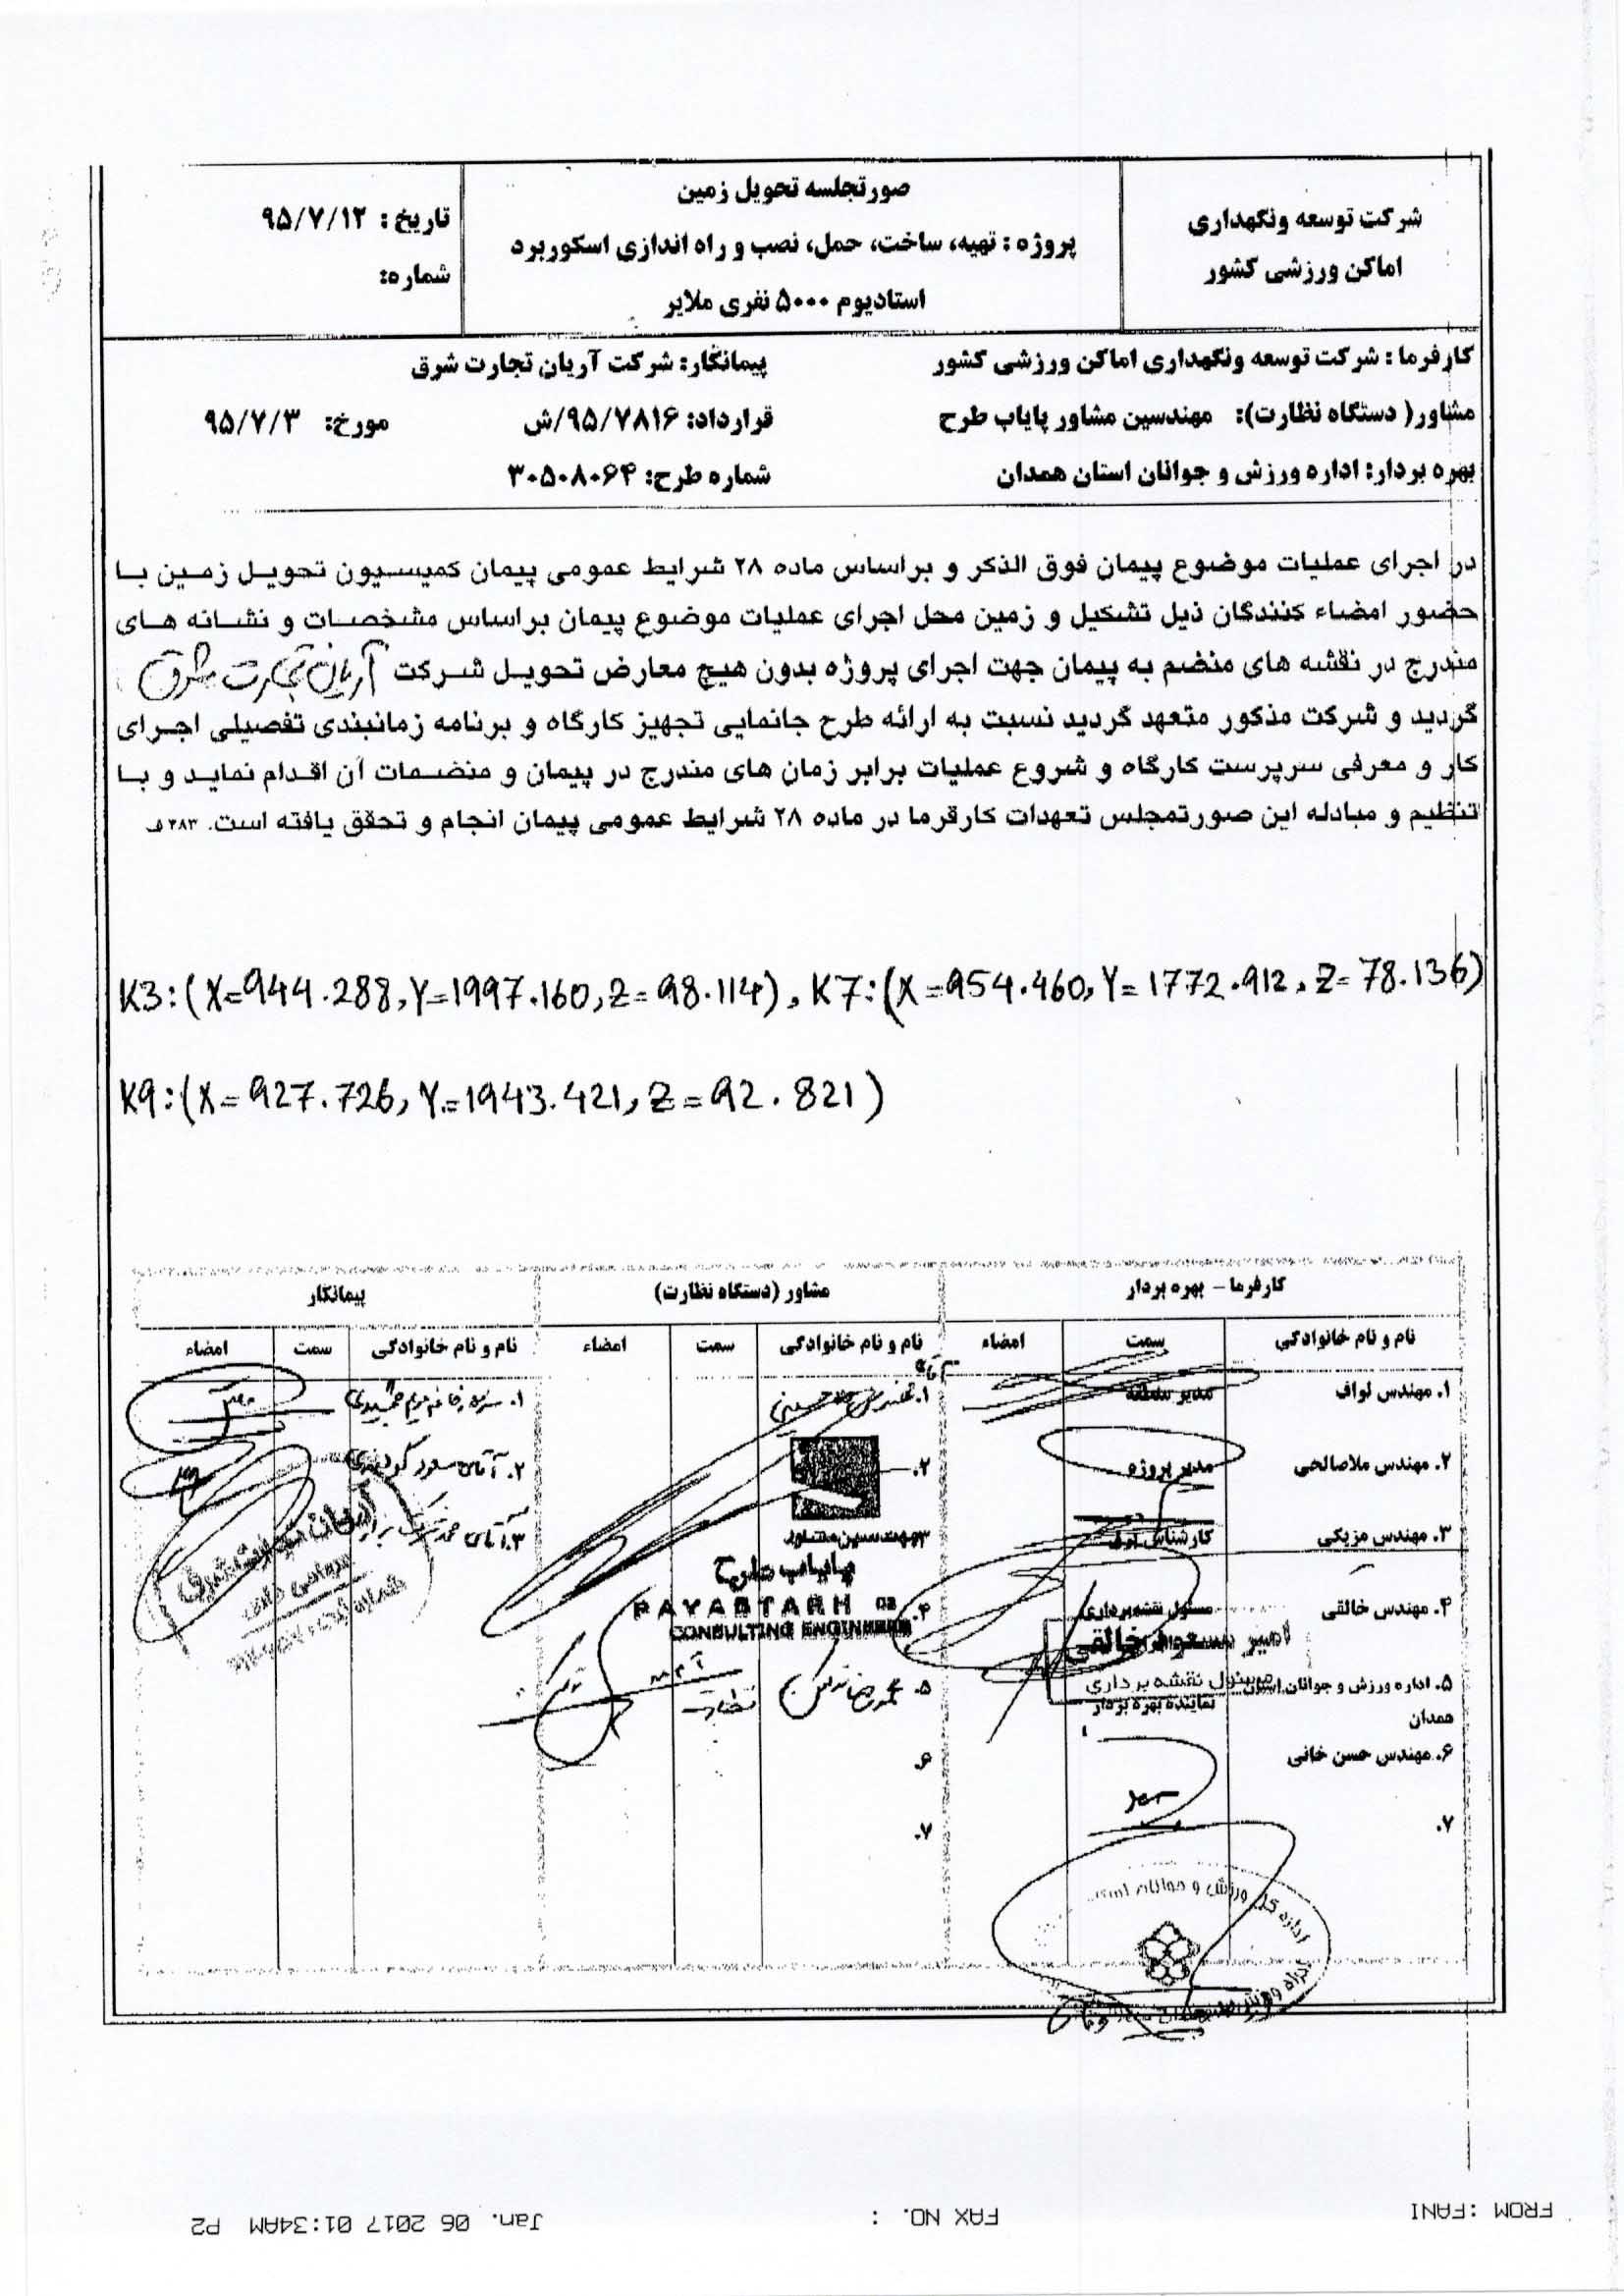 شرکت توسعه ونگهداری
اماکن ورزشی کشور
صورتجلسه تحویل زمین
پروژه : تهیه، ساخت، حمل، نصب و راه اندازی اسکوربرد
استادیوم ۵۰۰۰ نفری ملایر
تاریخ : ۹۵/۷/۱۲
شماره:
کارفرما : شرکت توسعه ونگهداری اماکن ورزشی کشور
پیمانکار: شرکت آریان تجارت شرق
مشاور( دستگاه نظارت): مهندسین مشاور پایاب طرح
قرارداد: ۹۵/۷۸۱۶/ش
مورخ: ۹۵/۷/۳
بهره بردار: اداره ورزش و جوانان استان همدان
شماره طرح: ۳۰۵۰۸۰۶۴
در اجرای عملیات موضوع پیمان فوق الذکر و براساس ماده ۲۸ شرایط عمومی پیمان کمیسیون تحویل زمین با
حضور امضاء کنندگان ذیل تشکیل و زمین محل اجرای عملیات موضوع پیمان براساس مشخصات و نشانه های
مندرج در نقشه های منضم به پیمان جهت اجرای پروژه بدون هیچ معارض تحویل شرکت آریان تجارت شرق
گردید و شرکت مذکور متعهد گردید نسبت به ارائه طرح جانمایی تجهیز کارگاه و برنامه زمانبندی تفصیلی اجرای
کار و معرفی سرپرست کارگاه و شروع عملیات برابر زمان های مندرج در پیمان و منضمات آن اقدام نماید و با
تنظیم و مبادله این صورتمجلس تعهدات کارفرما در ماده ۲۸ شرایط عمومی پیمان انجام و تحقق یافته است.
K3:(X=944.288,Y=1997.160,Z=98.114), K7:(X=954.460,Y=1772.912,Z=78.136)
K9:(X=927.726,Y=1943.421,Z=92.821)
کارفرما – بهره بردار
مشاور (دستگاه نظارت)
پیمانکار
نام و نام خانوادگی سمت امضاء
نام و نام خانوادگی سمت امضاء
نام و نام خانوادگی سمت امضاء
۱. مهندس لواف مدیر منطقه
۲. مهندس ملاصالحی مدیر پروژه
۳. مهندس مزیکی کارشناس
۴. مهندس خالقی مسئول نقشه برداری
امیر مسعود خالقی
مسئول نقشه برداری
۵. اداره ورزش و جوانان استان نماینده بهره بردار
همدان
۶. مهندس حسن خانی
۷.
۱.
۲.
۳. مهندسین مشاور
پایاب طرح
PAYABTARH
CONSULTING ENGINEERS
۴.
۵. محمدرضا
نظارت
۶.
۷.
۱. سرکار خانم مریم جمشیدی
۲. آقای مسعود گودرزی
۳. آقای
آریان تجارت شرق
اداره کل ورزش و جوانان استان
FROM :FANI
FAX NO. :
Jan. 06 2017 01:34AM P2